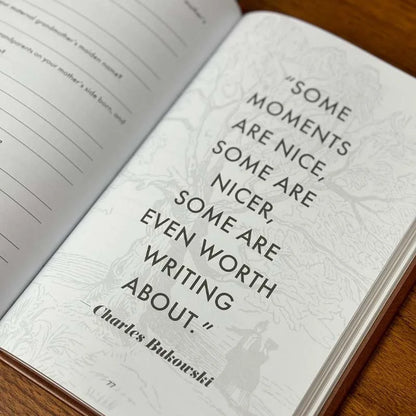 mother's
your maternal grandmother's maiden name?
grandparents on your mother's side born, and
?
"SOME
MOMENTS
ARE NICE,
SOME ARE
NICER,
SOME ARE
EVEN WORTH
WRITING
ABOUT."
Charles Bukowski
77